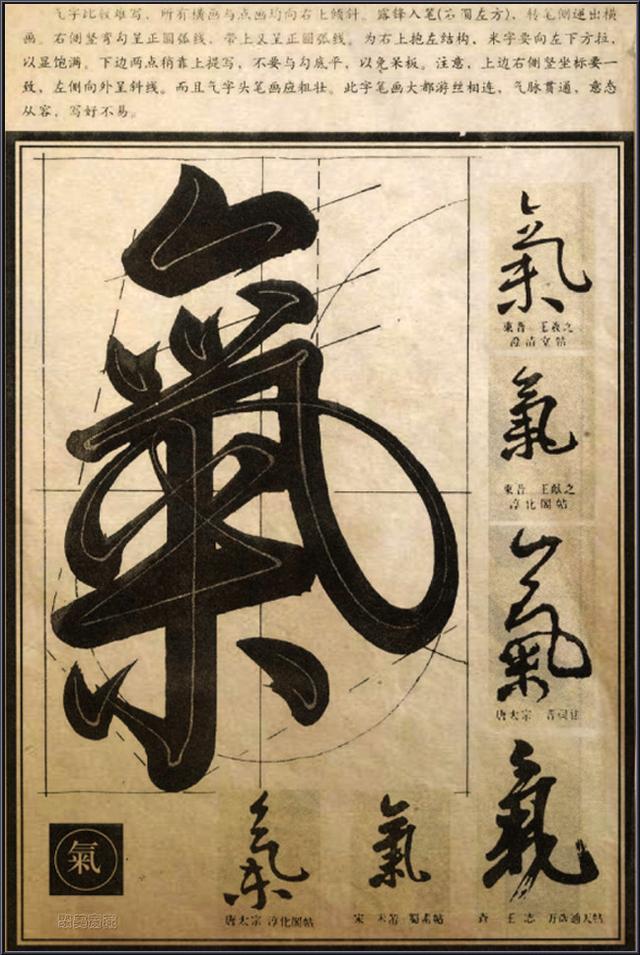 气字比较难写，所有横画与点画均向右上倾斜。露锋入笔(不圆左方)，转笔侧逆出横
画。右侧竖弯勾呈正圆弧线，带上又呈正圆弧线。为右上抱左结构，米字要向左下方拉，
以显饱满。下边两点稍靠上提写，不要与勾底平，以免呆板。注意，上边右侧竖坐标要一
致，左侧向外呈斜线。而且气字头笔画应粗壮。此字笔画大都游丝相连，气脉贯通，意态
从容，写好不易。
氣
氣
東晋 王羲之
澄清堂帖
氣
東晋 王献之
淳化閣帖
氣
唐太宗
氣
氣
唐太宗 淳化閣帖
氣
宋 米芾 蜀素帖
氣
王 志 万歲通天帖